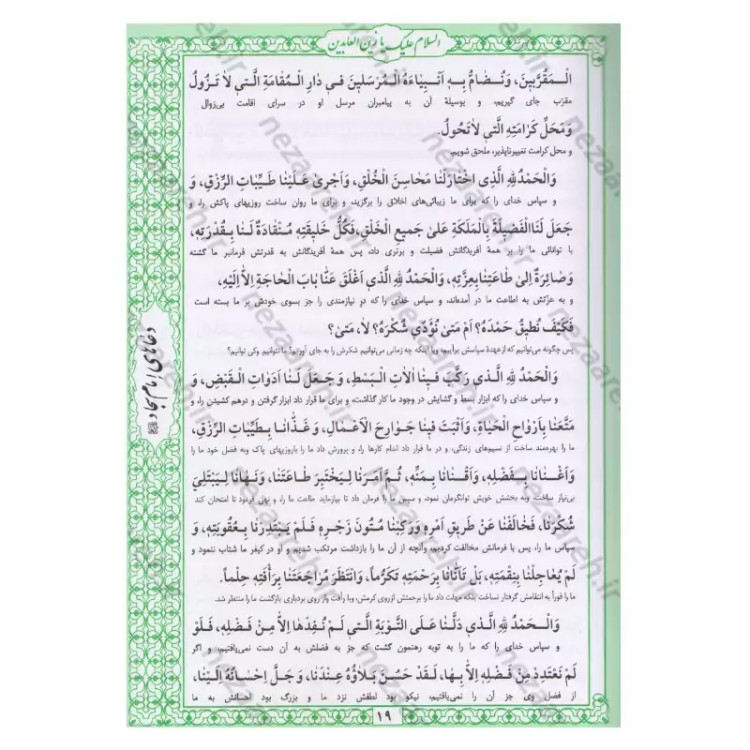 السلام علیک یا زین العابدین
الْمُقَرَّبِینَ، وَنُضَامُّ بِهِ اَنْبِیَاءَهُ الْمُرْسَلِینَ فِی دَارِ الْمُقَامَةِ الَّتِی لاَ تَزُولُ
مقرّب جای گیریم، و بوسیلهٔ آن به پیامبران مرسل او در سرای اقامت بی‌زوال
وَمَحَلِّ کَرَامَتِهِ الَّتِی لاَتَحُولُ.
و محل کرامت تغییرناپذیر، ملحق شویم.
وَالْحَمْدُ لِلَّهِ الَّذِی اخْتَارَلَنَا مَحَاسِنَ الْخُلْقِ، وَاَجْرَی عَلَیْنَا طَیِّبَاتِ الرِّزْقِ، وَ
و سپاس خدای را که برای ما زیبائی‌های اخلاق را برگزید، و برای ما روان ساخت روزیهای پاکش را، و
جَعَلَ لَنَاالْفَضِیلَةَ بِالْمَلَکَةِ عَلَی جَمِیعِ الْخَلْقِ،فَکُلُّ خَلِیقَتِهِ مُنْقَادَةٌ لَنَا بِقُدْرَتِهِ،
با توانائی ما را بر همهٔ آفریدگانش فضیلت و برتری داد، پس همهٔ آفریدگانش به قدرتش فرمانبر ما گشته
وَصَائِرَةٌ اِلَی طَاعَتِنَا بِعِزَّتِهِ، وَالْحَمْدُ لِلَّهِ الَّذِی اَغْلَقَ عَنَّا بَابَ الْحَاجَةِ اِلاَّ اِلَیْهِ،
و به عزّتش به اطاعت ما در آمده‌اند، و سپاس خدای را که در نیازمندی را جز بسوی خودش بر ما بسته است
فَکَیْفَ نُطِیقُ حَمْدَهُ؟ اَمْ مَتَی نُؤَدِّی شُکْرَهُ؟ لاَ، مَتَی؟
پس چگونه می‌توانیم که از عهدهٔ سپاسش برآییم، ویا اینکه چه زمانی می‌توانیم شکرش را به جای آوریم؟ ما نتوانیم وکی توانیم؟
وَالْحَمْدُ لِلَّهِ الَّذِی رَکَّبَ فِینَا آلاَتِ الْبَسْطِ، وَ جَعَلَ لَنَا اَدَوَاتِ الْقَبْضِ، وَ
و سپاس خدای را که ابزار بسط و گشایش در وجود ما کار گذاشت، و برای ما قرار داد ابزار گرفتن و درهم کشیدن را، و
مَتَّعَنَا بِاَرْوَاحِ الْحَیَاةِ، وَ اَثْبَتَ فِینَا جَوَارِحَ الْاَعْمَالِ، وَ غَذَّانَا بِطَیِّبَاتِ الرِّزْقِ،
ما را بهره‌مند ساخت از نسیم‌های زندگی، و در ما قرار داد اندام کارها را، و پرورش داد ما را باروزیهای پاک وبه فضل خود ما را
وَ اَغْنَانَا بِفَضْلِهِ، وَ اَقْنَانَا بِمَنِّهِ، ثُمَّ اَمَرَنَا لِیَخْتَبِرَ طَاعَتَنَا، وَ نَهَانَا لِیَبْتَلِیَ
بی‌نیاز ساخت، وبه بخشش خویش توانگرمان نمود، و سپس ما را فرمان داد تا بیازماید طاعت ما را، و نهی فرمود تا امتحان کند
شُکْرَنَا، فَخَالَفْنَا عَنْ طَرِیقِ اَمْرِهِ وَرَکِبْنَا مُتُونَ زَجْرِهِ فَلَمْ یَبْتَدِرْنَا بِعُقُوبَتِهِ، وَ
سپاس ما را، پس با فرمانش مخالفت کردیم، وآنچه از آن ما را بازداشت مرتکب شدیم و او در کیفر ما شتاب ننمود و
لَمْ یُعَاجِلْنَا بِنِقْمَتِهِ، بَلْ تَاَنَّانَا بِرَحْمَتِهِ تَکَرُّمًا، وَانْتَظَرَ مُرَاجَعَتَنَا بِرَاْفَتِهِ حِلْماً.
ما را فوراً به انتقامش گرفتار نساخت بلکه مهلت داد ما را برحمتش ازروی کرمش، وبا رأفت واز روی بردباری بازگشت ما را منتظر شد.
وَالْحَمْدُ لِلَّهِ الَّذِی دَلَّنَا عَلَی التَّوْبَةِ الَّتِی لَمْ نُفِدْهَا اِلاَّ مِنْ فَضْلِهِ، فَلَوْ
و سپاس خدای را که ما را به توبه رهنمون گشت که جز به فضلش به آن دست نمی‌یافتیم، و اگر
لَمْ نَعْتَدِدْ مِنْ فَضْلِهِ اِلاَّ بِهَا، لَقَدْ حَسُنَ بَلاَؤُهُ عِنْدَنَا، وَ جَلَّ اِحْسَانُهُ اِلَیْنَا،
از فضل وی جز آن را نمی‌یافتیم، نیکو بود لطفش نزد ما و بزرگ بود احسانش به ما
۱۹
دعاهای امام سجاد
nezaareh.ir